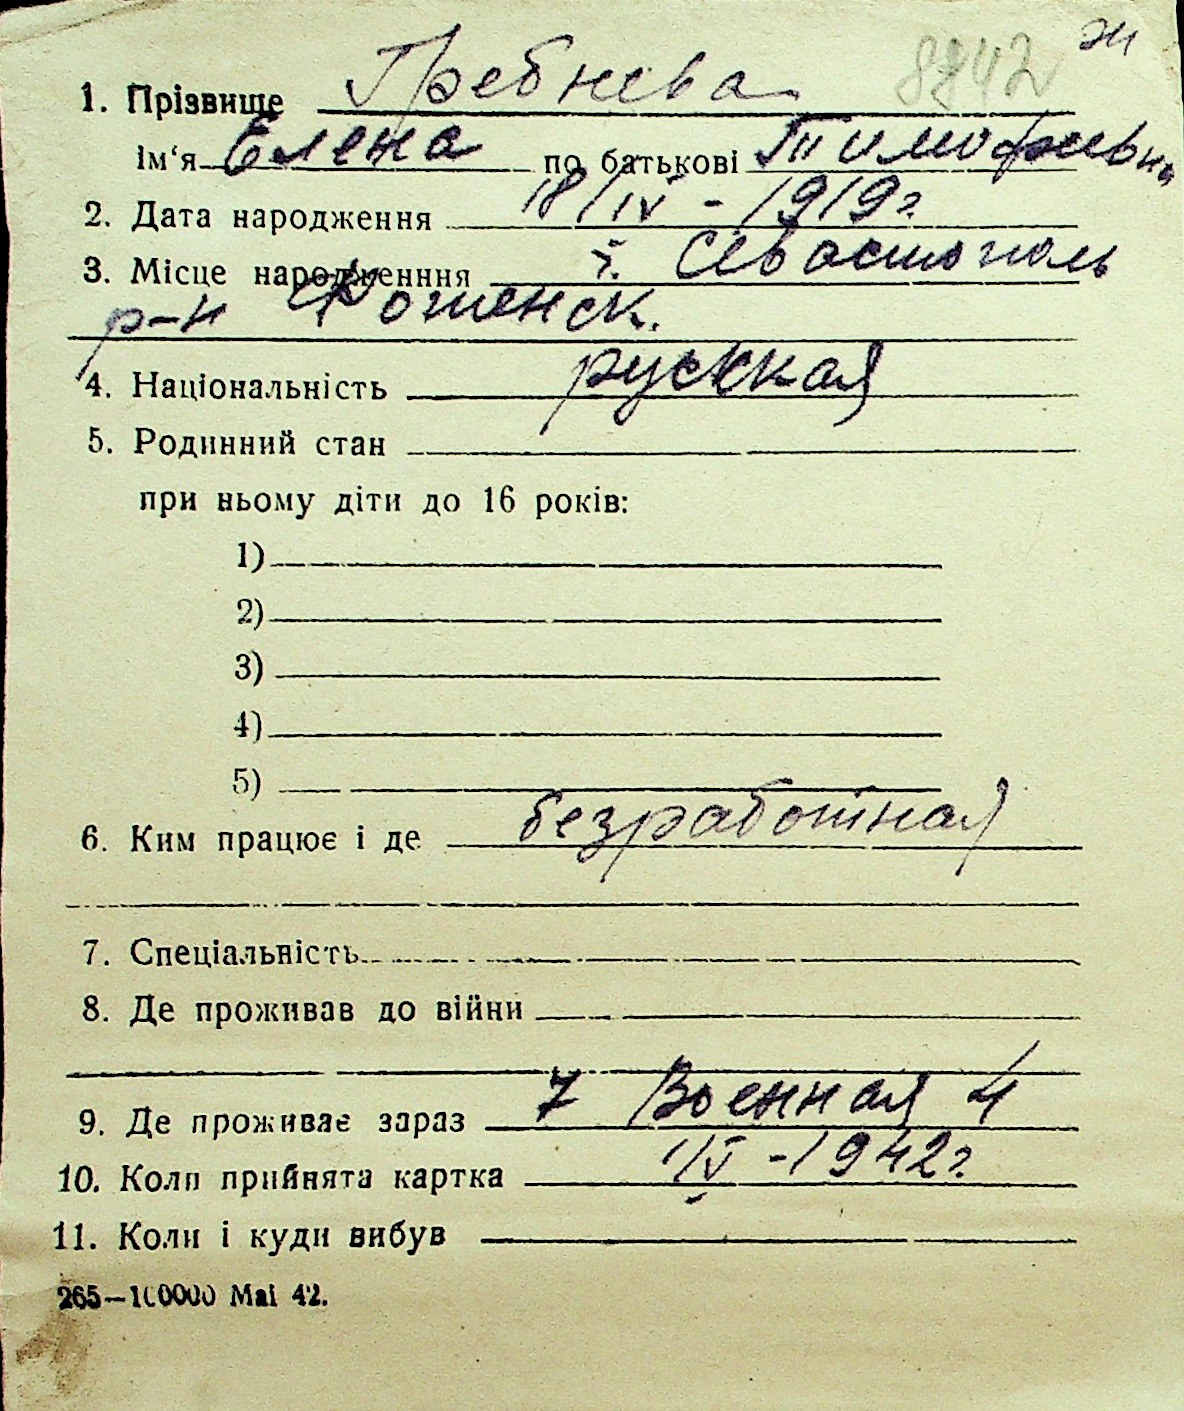 эн
8842
1. Прізвище Гребнева
Ім‘я Елена по батькові Тимофеевна
2. Дата народження 18/IV - 1919 г
3. Місце народженння г. Севастополь
р-н
4. Національність русская
5. Родинний стан
при ньому діти до 16 років:
1)
2)
3)
4)
5)
6. Ким працює і де безработная
7. Спеціальність
8. Де проживав до війни
9. Де проживає зараз 7 Военная 4
10. Коли прийнята картка 1/V - 1942 г
11. Коли і куди вибув
265—100000 Mai 42.